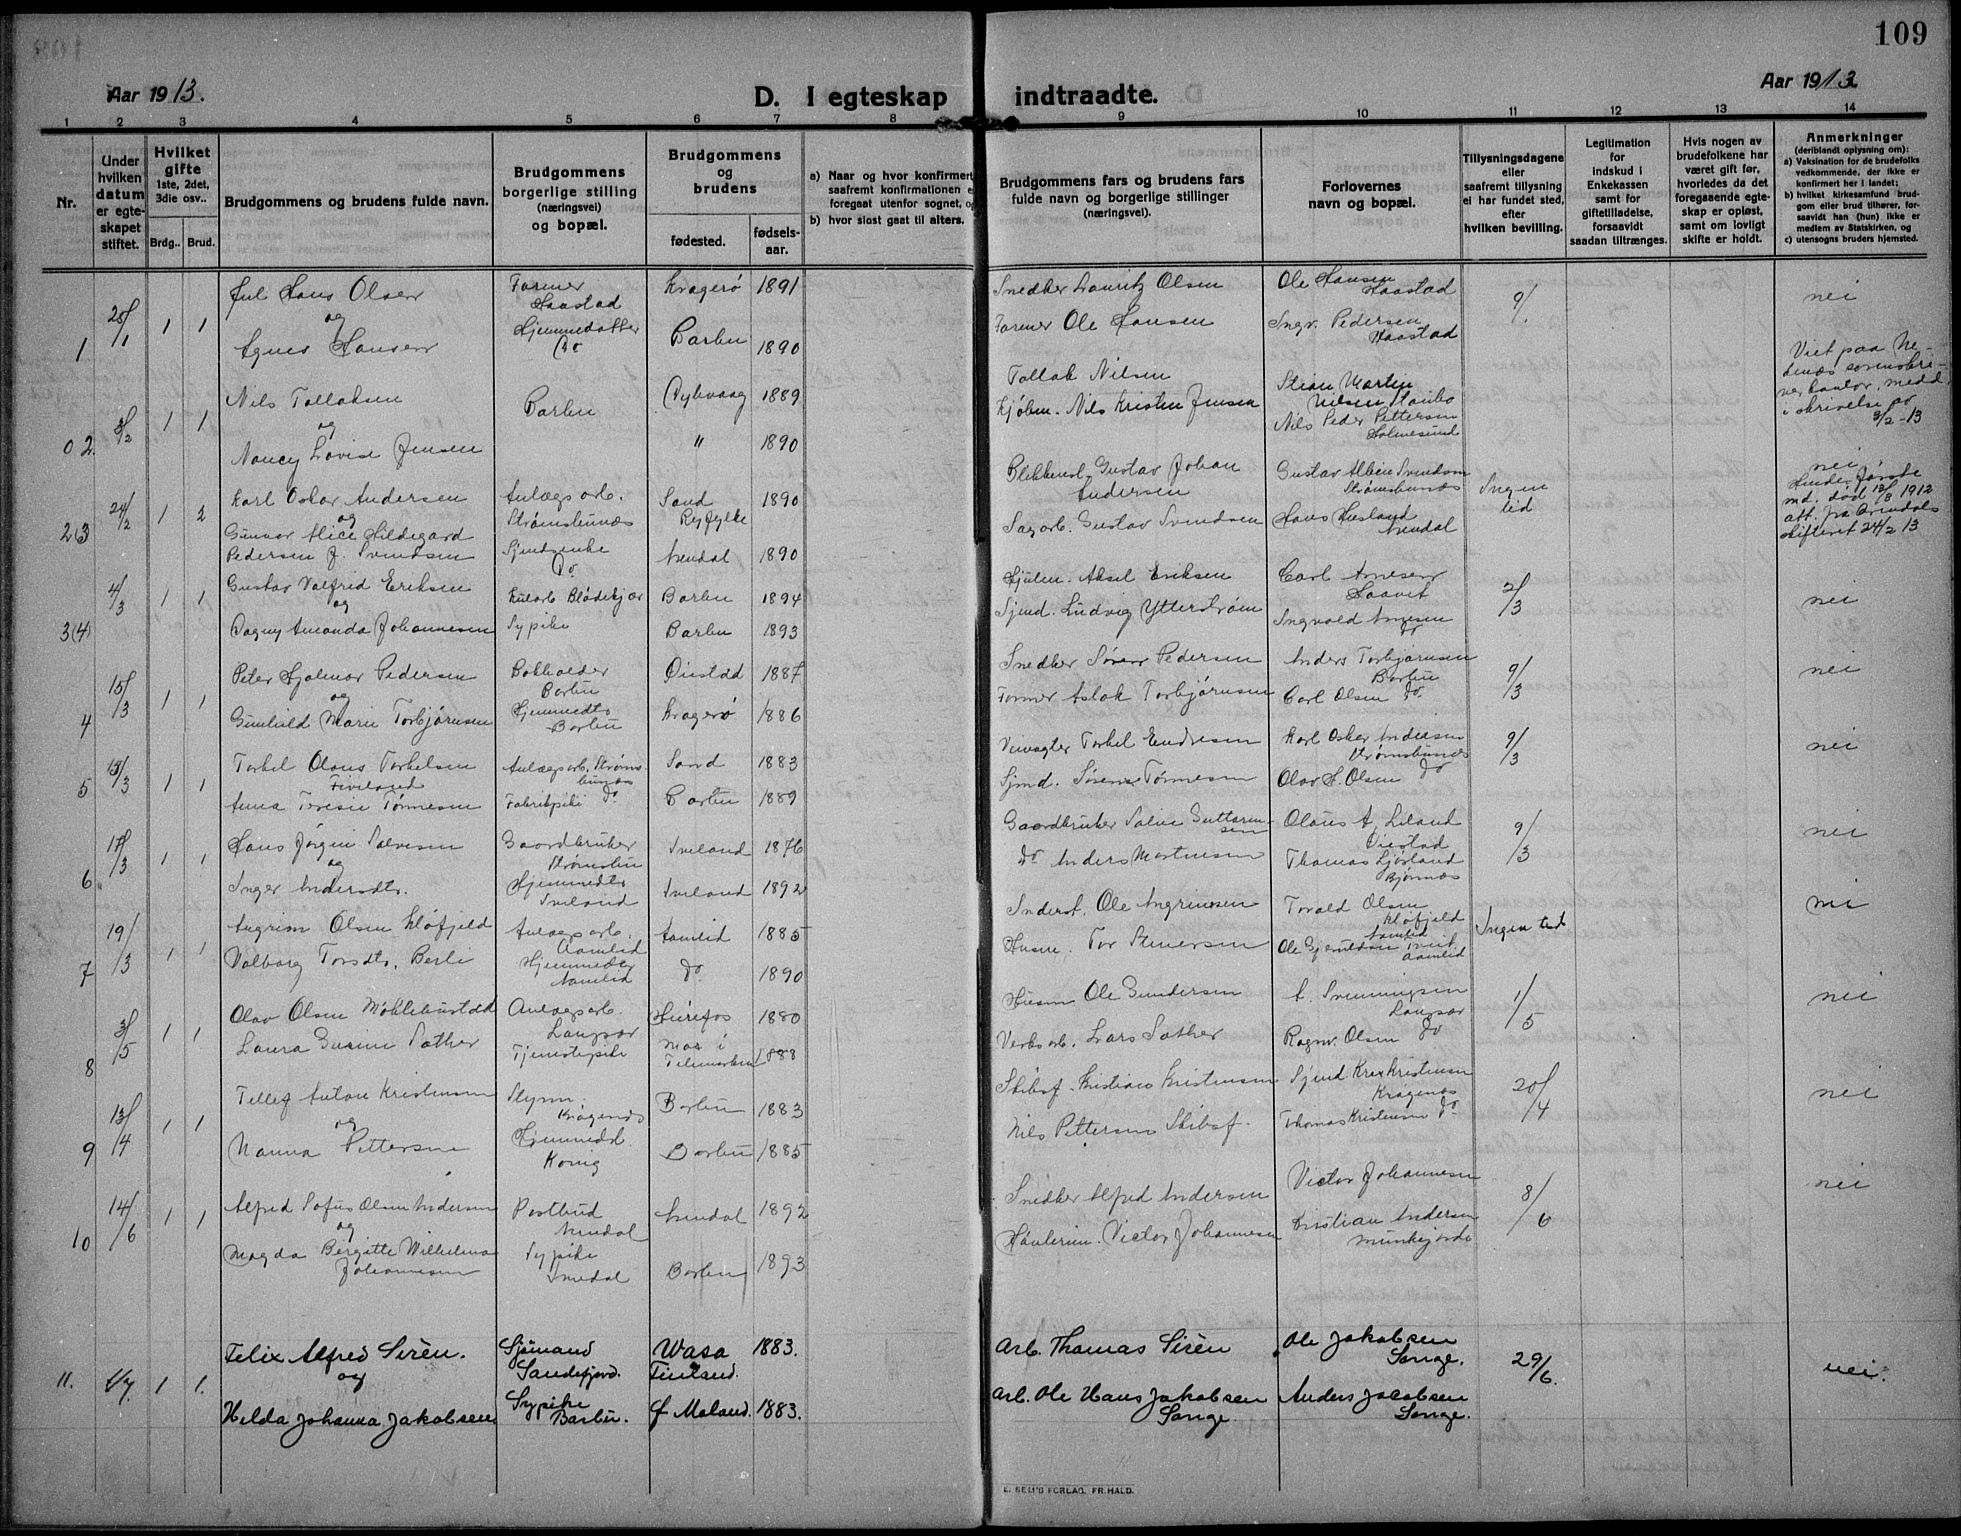 109
Aar 1913.
D. I egteskap indtraadte.
Aar 1913
1 2 3 4 5 6 7 8 9 10 11 12 13 14
Nr.
Under hvilken datum er egte-skapet stiftet.
Hvilket gifte 1ste, 2det, 3die osv..
Brdg.. Brud.
Brudgommens og brudens fulde navn.
Brudgommens borgerlige stilling (næringsvei) og bopæl.
Brudgommens og brudens
fødested.
fødsels-aar.
a) Naar og hvor konfirmert
saafremt konfirmationen e
foregaat utenfor sognet, o
b) hvor sidst gaat til alters.
Brudgommens fars og brudens fars
fulde navn og borgerlige stillinger
(næringsvei).
Forlovernes
navn og bopæl.
Tillysningsdagene
eller
saafremt tillysning
ei har fundet sted,
efter
hvilken bevilling.
Legitimation
for
indskud i
Enkekassen
samt for
giftetilladelse,
forsaavidt
saadan tiltrænges.
Hvis nogen av
brudefolkene har
været gift før,
hvorledes da det
foregaaende egte-
skap er opløst,
samt om lovligt
skifte er holdt.
Anmerkninger
(deriblandt oplysning om):
a) Vaksination for de brudefolks
vedkommende, der ikke er
konfirmert her i landet;
b) hvilket kirkesamfund brud-
gom eller brud tilhører, for-
saavidt han (hun) ikke er
medlem av Statskirken, og
c) utensogns bruders hjemsted.
1 25/1 1 1 Jul Hans Olsen Former Haastad Kragerø 1891 Snedker Lauritz Olsen Ole Hansen Haastad 9/1 nei
og
Agnes Hansen Hjemmedatter Do Barbu 1890 Former Ole Hansen Ingv. Pedersen Haastad
02. 3/2 1 1 Nils Tallaksen Barbu Dybvaag 1889 Tallak Nilsen Stian Martin Nilsen Viet paa Ne-
denæs sorenskri-
ver kontor, medd.
i skrivelse av
3/2-13
og
Nancy Lovise Jensen " 1890 Kjøbm. Nils Kristen Jensen Nils Peder Pettersen Holmesund
23 24/2 1 2 Karl Oskar Andersen Anlægsarb. Strømsbunæs Sand Ryfylke 1890 Blikkensl. Gustav Johan Andersen Gustav Albin Svendsen Strømsbunæs Ingen tid nei
og
Gunvor Alice Hildegard
Pedersen f. Svendsen Do Arendal 1890 Sagarb. Gustav Svendsen Hans Husland Arendal
Hendes første
md. død 13/8 1912
att. fra Arendals
skifteret 24/2 13
3(4) 4/3 1 1 Gustav Valfrid Eriksen Barbu 1894 Aksel Eriksen Carl Arnesen Saavit 2/3 nei
og
Dagny Amanda Johannesen Sypike Barbu 1893 Sjmd. Ludvig Ytterstrøm Ingvald Arnesen do
4 15/3 1 1 Peter Hjalmar Pedersen Bokholder Barbu Øiestad 1887 Snedker Søren Pedersen Anders Torbjørnsen Barbu 9/3 nei
og
Gunhild Marie Torbjørnsen Hjemmedtr Barbu Kragerø 1886 Former Aslak Torbjørnsen Carl Olsen do
5 15/3 1 1 Torkel Olaus Torkelsen Anlægsarb. Strømsbunæs Sand 1883 Veivogter Torkel Endresen Karl Oskar Andersen Strømsbunæs 9/3 nei
Anna Teresie Tønnesen Fabrikpike do Barbu 1889 Sjmd. Tønnesen Olav S. Olsen do
6 17/3 1 1 Hans Jørgen Salvesen Gaardbruker Strømsbu Iveland 1876 Gaardbruker Salve Guttormsen Olaus A. Liland Øiestad 9/3 nei
og
Inger Andersdtr. Hjemmedtr Iveland Iveland 1892 do Anders Mortensen Thomas Ljøsland Bjønnæs
7 19/3 1 1 Angrim Olsen Kløfjeld Anlægsarb. Aamlid Aamlid 1885 Inderst. Ole Angrimsen Torald Olsen Kløfjeld Aamlid Ingen tid nei
Valborg Torsdtr. Berli Hjemmedtr Aamlid do 1890 Husm. Tor Ole Gjeruldsen Tveit Aamlid
8 3/5 1 1 Olav Olsen Møklebustdd Anlægsarb. Langsæ Herefos 1880 Husm Ole Gundersen A. Svenningsen Langsær 1/5 nei
Laura Sather Tjenestepike Mæs i Telemarken 1888 Verksarb. Lars Sather Ragnv. Olsen do
9 13/4 1 1 Tellef Anton Kristensen Styrm. Kragenæs Barbu 1883 Skibsf. Kristian Kristensen Sjmd Kristensen Kragenæs 20/4 nei
og
Nanna Pettersen Hjemmedtr. Kovig Barbu 1885 Nils Pettersen Skibsf. Thomas Kristensen do
10 14/6 1 1 Alfred Sofus Olsen Andersen Postbud Arendal Arendal 1892 Snedker Alfred Andersen Victor Johannesen 8/6 nei
og
Magda Bergitte Wilhelmine Johannesen Sypike Arendal Barbu 1893 Victor Johannesen Kristian Andersen Munkejorde
11. 6/7. 1 1. Felix Alfred Sirèn. Sjømand Sandefjord. Wasa Finland. 1883. Arb. Thomas Sirèn Ole Jakobsen Songe. 29/6. nei.
og
Helda Johanna Jakobsen Sypike Barbu. Ø Moland. 1883. Arb. Ole Hans Jakobsen Songe. Anders Jacobsen Songe.
E. SEM'S FORLAG, FR. HALD.